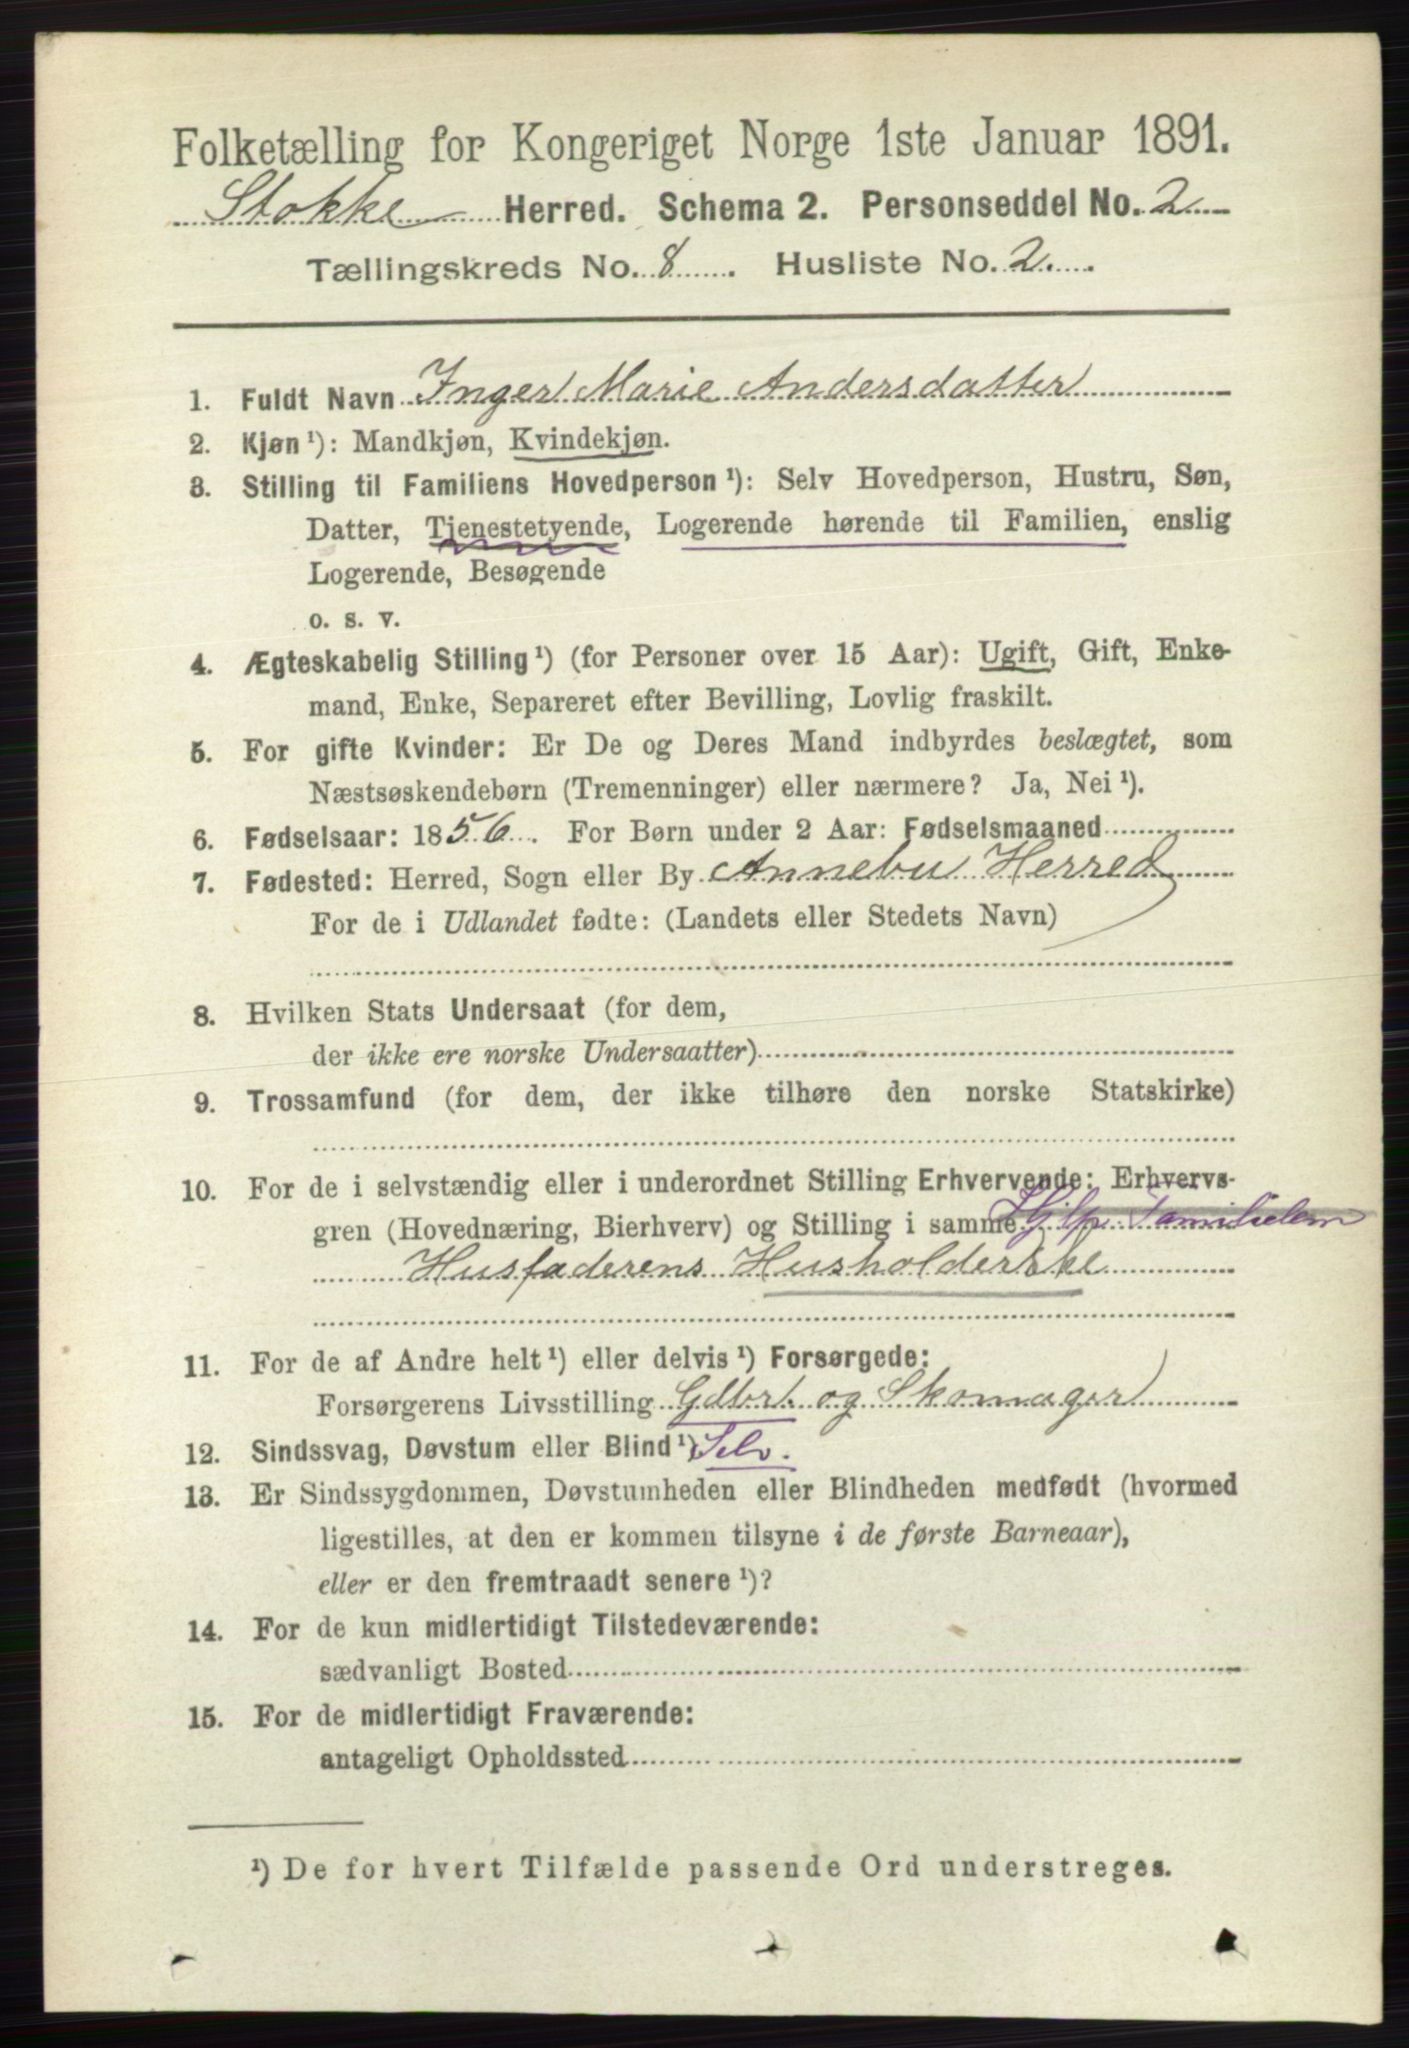 Folketælling for Kongeriget Norge 1ste Januar 1891.
Stokke Herred. Schema 2. Personseddel No. 2
Tællingskreds No. 8. Husliste No. 2.
1. Fuldt Navn Inger Marie Andersdatter
2. Kjøn ¹): Mandkjøn, Kvindekjøn.
3. Stilling til Familiens Hovedperson ¹): Selv Hovedperson, Hustru, Søn,
Datter, Tjenestetyende, Logerende hørende til Familien, enslig
Logerende, Besøgende
o. s. v.
4. Ægteskabelig Stilling ¹) (for Personer over 15 Aar): Ugift, Gift, Enke-
mand, Enke, Separeret efter Bevilling, Lovlig fraskilt.
5. For gifte Kvinder: Er De og Deres Mand indbyrdes beslægtet, som
Næstsøskendebørn (Tremenninger) eller nærmere? Ja, Nei ¹).
6. Fødselsaar: 1856. For Børn under 2 Aar: Fødselsmaaned
7. Fødested: Herred, Sogn eller By Annebu Herred
For de i Udlandet fødte: (Landets eller Stedets Navn)
8. Hvilken Stats Undersaat (for dem,
der ikke ere norske Undersaatter)
9. Trossamfund (for dem, der ikke tilhøre den norske Statskirke)
10. For de i selvstændig eller i underordnet Stilling Erhvervende: Erhvervs-
gren (Hovednæring, Bierhverv) og Stilling i samme Hjlp. Familielem
Husfaderens Husholderske
11. For de af Andre helt ¹) eller delvis ¹) Forsørgede:
Forsørgerens Livsstilling Gdbr. og Skomager
12. Sindssvag, Døvstum eller Blind ¹) Selv.
13. Er Sindssygdommen, Døvstumheden eller Blindheden medfødt (hvormed
ligestilles, at den er kommen tilsyne i de første Barneaar),
eller er den fremtraadt senere ¹)?
14. For de kun midlertidigt Tilstedeværende:
sædvanligt Bosted
15. For de midlertidigt Fraværende:
antageligt Opholdssted
¹) De for hvert Tilfælde passende Ord understreges.